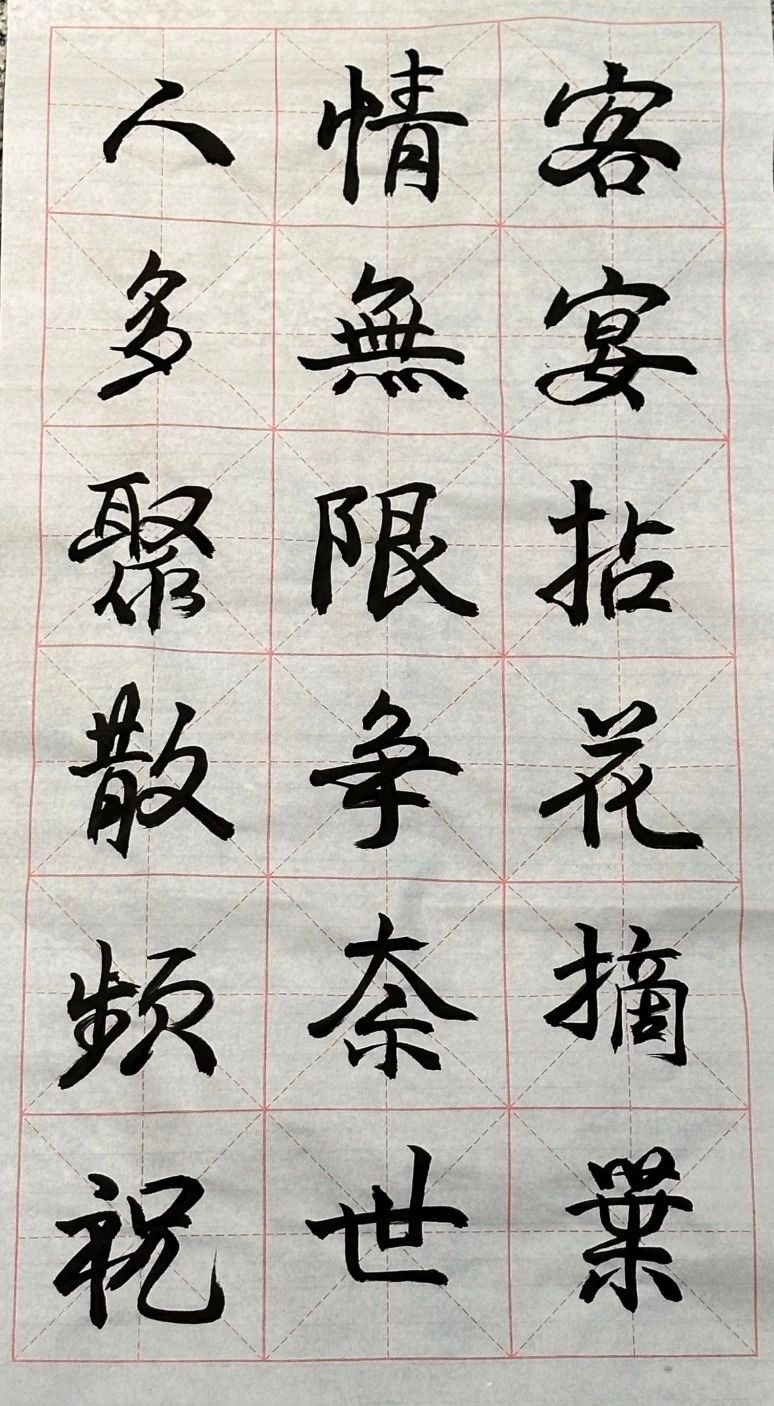 客宴拈花摘葉
情無限争奈世
人多聚散頻祝